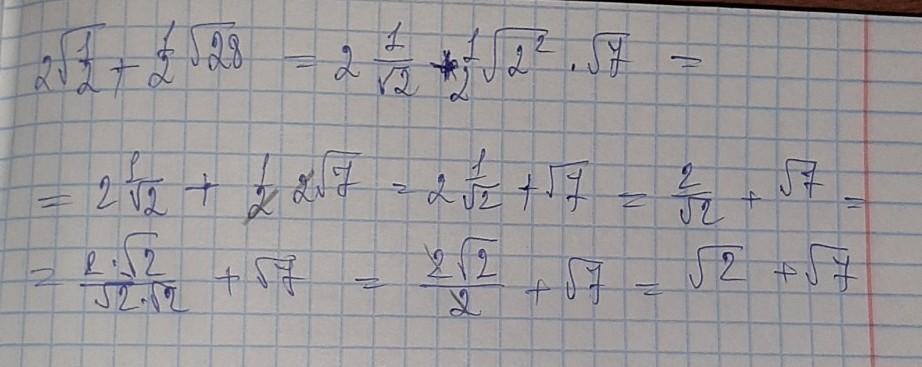 2√1/2 + 1/2 √28 = 2 1/√2 + 1/2 √2² · √7 =
= 2 1/√2 + 1/2 2√7 = 2 1/√2 + √7 = 2/√2 + √7 =
= 2·√2/√2·√2 + √7 = 2√2/2 + √7 = √2 + √7